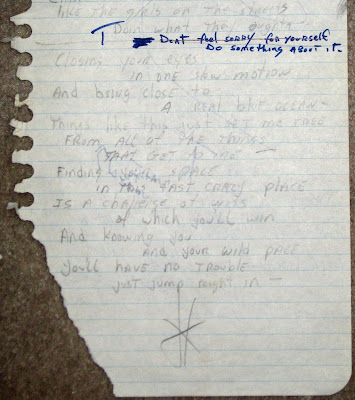 like the girls on the streets
Doin what they
T Dont feel sorry for yourself
Do something about it.
Closing your eyes
in one slow motion
And being close to
A real blue ocean
Things like this just set me free
From all of the things
that get to me
Finding your space
in this fast crazy place
Is a challenge of wits
of which you'll win
And knowing you
and your wild pace
You'll have no trouble
just jump right in —